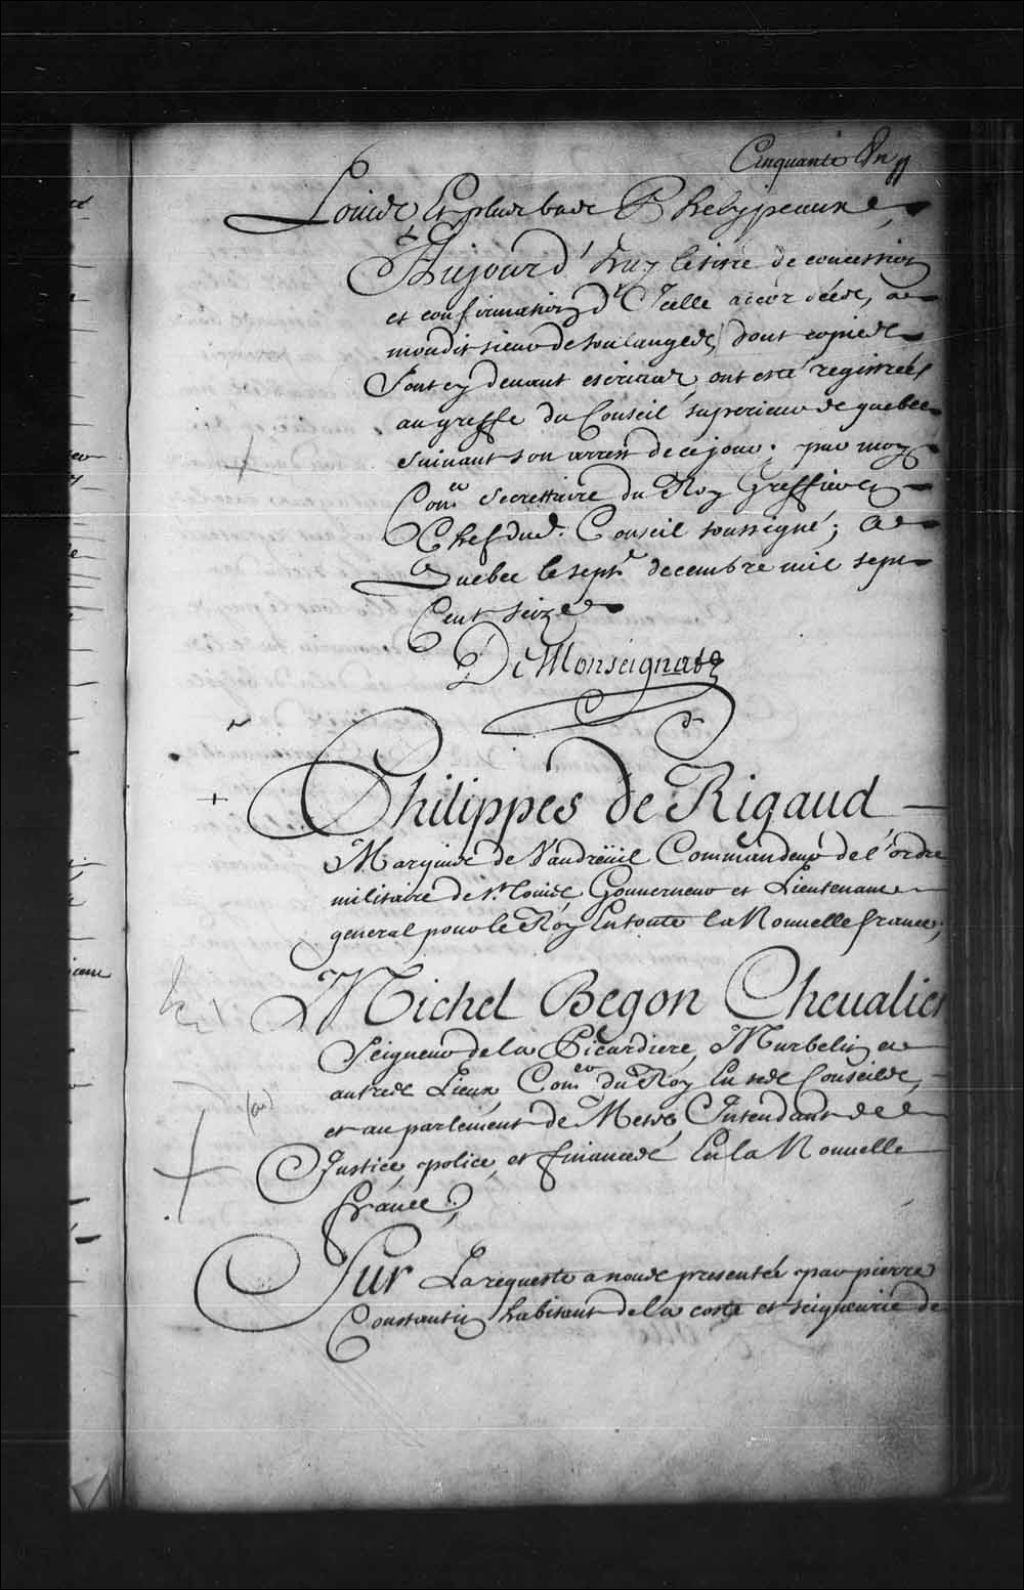 Cinquante Un
Louis, Et plus bas Phelypeaux
Aujourd'huy le titre de concession
et confirmation d'Icelle accordées, a
mondit sieur de Soulanges, dont copies
sont cy devant escrites, ont esté registrées
au greffe du Conseil superieur de quebec
suivant son arrest de ce jour; par moy
Con.er Secrettaire du Roy Greffier en
Chef dud. Conseil soussigné; A
Quebec le sept.e decembre mil sept
Cent seize
De Monseignat
Philippes de Rigaud
Marquis de Vaudreüil Commandeur de l'ordre
militaire de St. Louis Gouverneur et Lieutenant
general pour le Roy En toute la Nouvelle france;
Michel Begon Chevalier
Seigneur de la Picardiere, Murbelin et
autres Lieux, Con.er du Roy En ses Conseils,
et au parlement de Mets, Intendant de
Justice, police, et finances En la Nouvelle
france;
Sur La requeste a nous presentée par pierre
Constantin habitant de la coste et seigneurie de